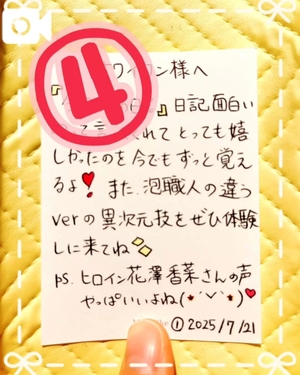 ④
ワイワン様へ
日記面白い
れて とっても嬉
しかったのを今でもずっと覚え
るよ❣ また、泡職人の違う
verの異次元技をぜひ体験
しに来てね
ps. ヒロイン花澤香菜さんの声
やっぱいいよね(*´˘`*)♥
① 2025/7/21